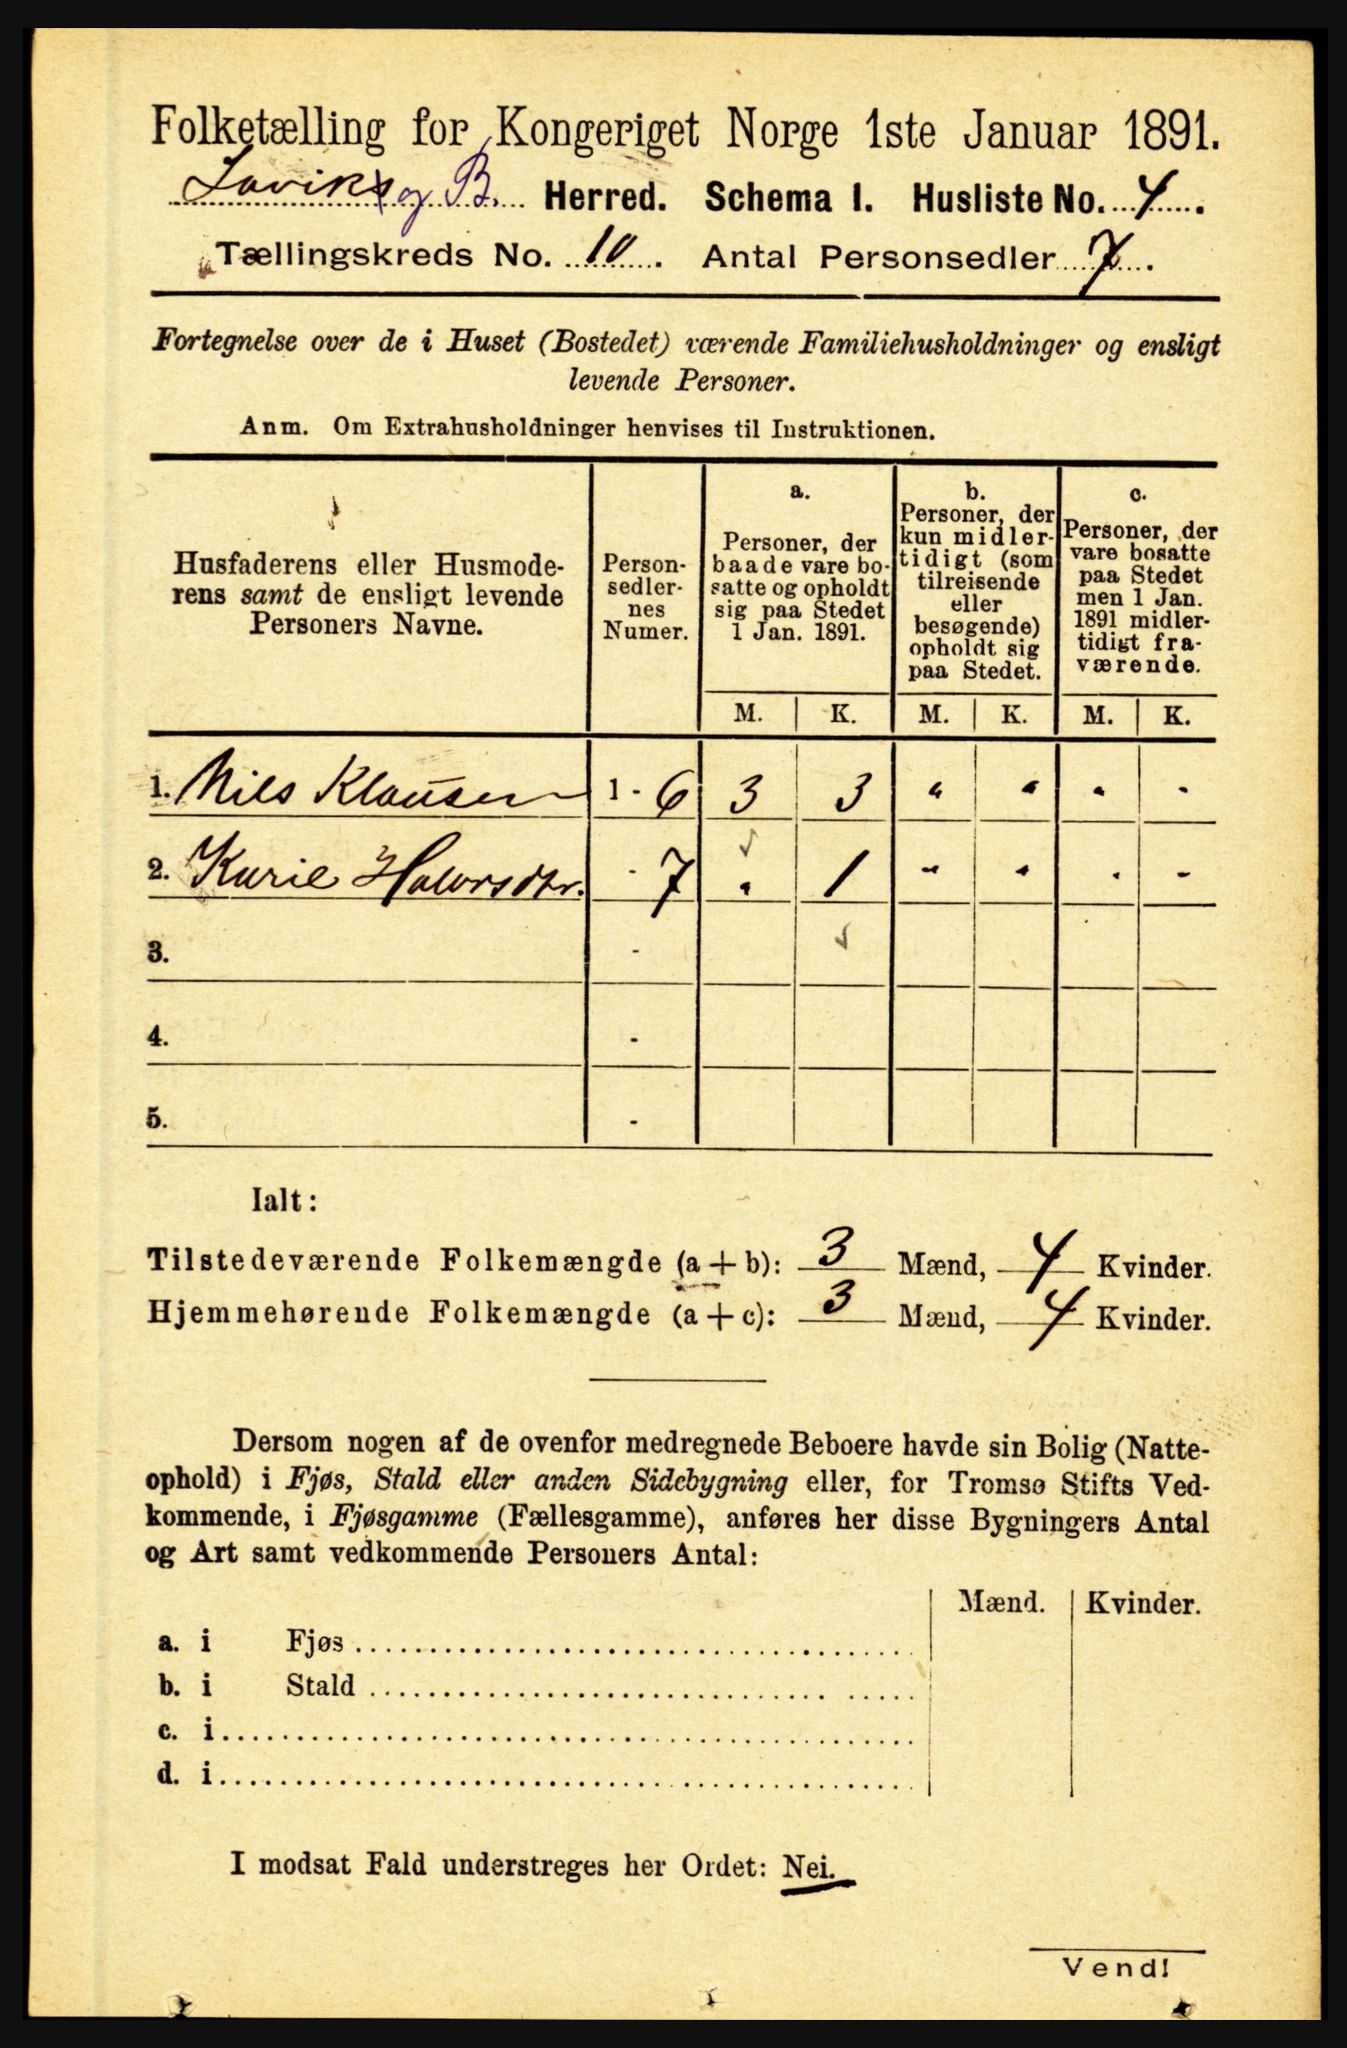 Folketælling for Kongeriget Norge 1ste Januar 1891.
Laviks og B. Herred. Schema I. Husliste No. 4.
Tællingskreds No. 10. Antal Personsedler 7.
Fortegnelse over de i Huset (Bostedet) værende Familiehusholdninger og ensligt
levende Personer.
Anm. Om Extrahusholdninger henvises til Instruktionen.
Husfaderens eller Husmode-
rens samt de ensligt levende
Personers Navne.
Person-
sedler-
nes
Numer.
a.
Personer, der
baade vare bo-
satte og opholdt
sig paa Stedet
1 Jan. 1891.
b.
Personer, der
kun midler-
tidigt (som
tilreisende
eller
besøgende)
opholdt sig
paa Stedet.
c.
Personer, der
vare bosatte
paa Stedet
men 1 Jan.
1891 midler-
tidigt fra-
værende.
M. K. M. K. M. K.
1. Nils Klausen 1 - 6 3 3 " " " "
2. Karie Halvorsdtr. - 7 " 1 " " " "
3. -
4. -
5. -
Ialt:
Tilstedeværende Folkemængde (a + b): 3 Mænd, 4 Kvinder.
Hjemmehørende Folkemængde (a + c): 3 Mænd, 4 Kvinder.
Dersom nogen af de ovenfor medregnede Beboere havde sin Bolig (Natte-
ophold) i Fjøs, Stald eller anden Sidebygning eller, for Tromsø Stifts Ved-
kommende, i Fjøsgamme (Fællesgamme), anføres her disse Bygningers Antal
og Art samt vedkommende Personers Antal:
Mænd. Kvinder.
a. i Fjøs
b. i Stald
c. i
d. i
I modsat Fald understreges her Ordet: Nei.
Vend!